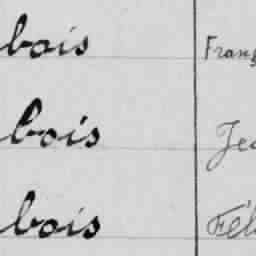 bois Franç
bois Jea
bois Féli